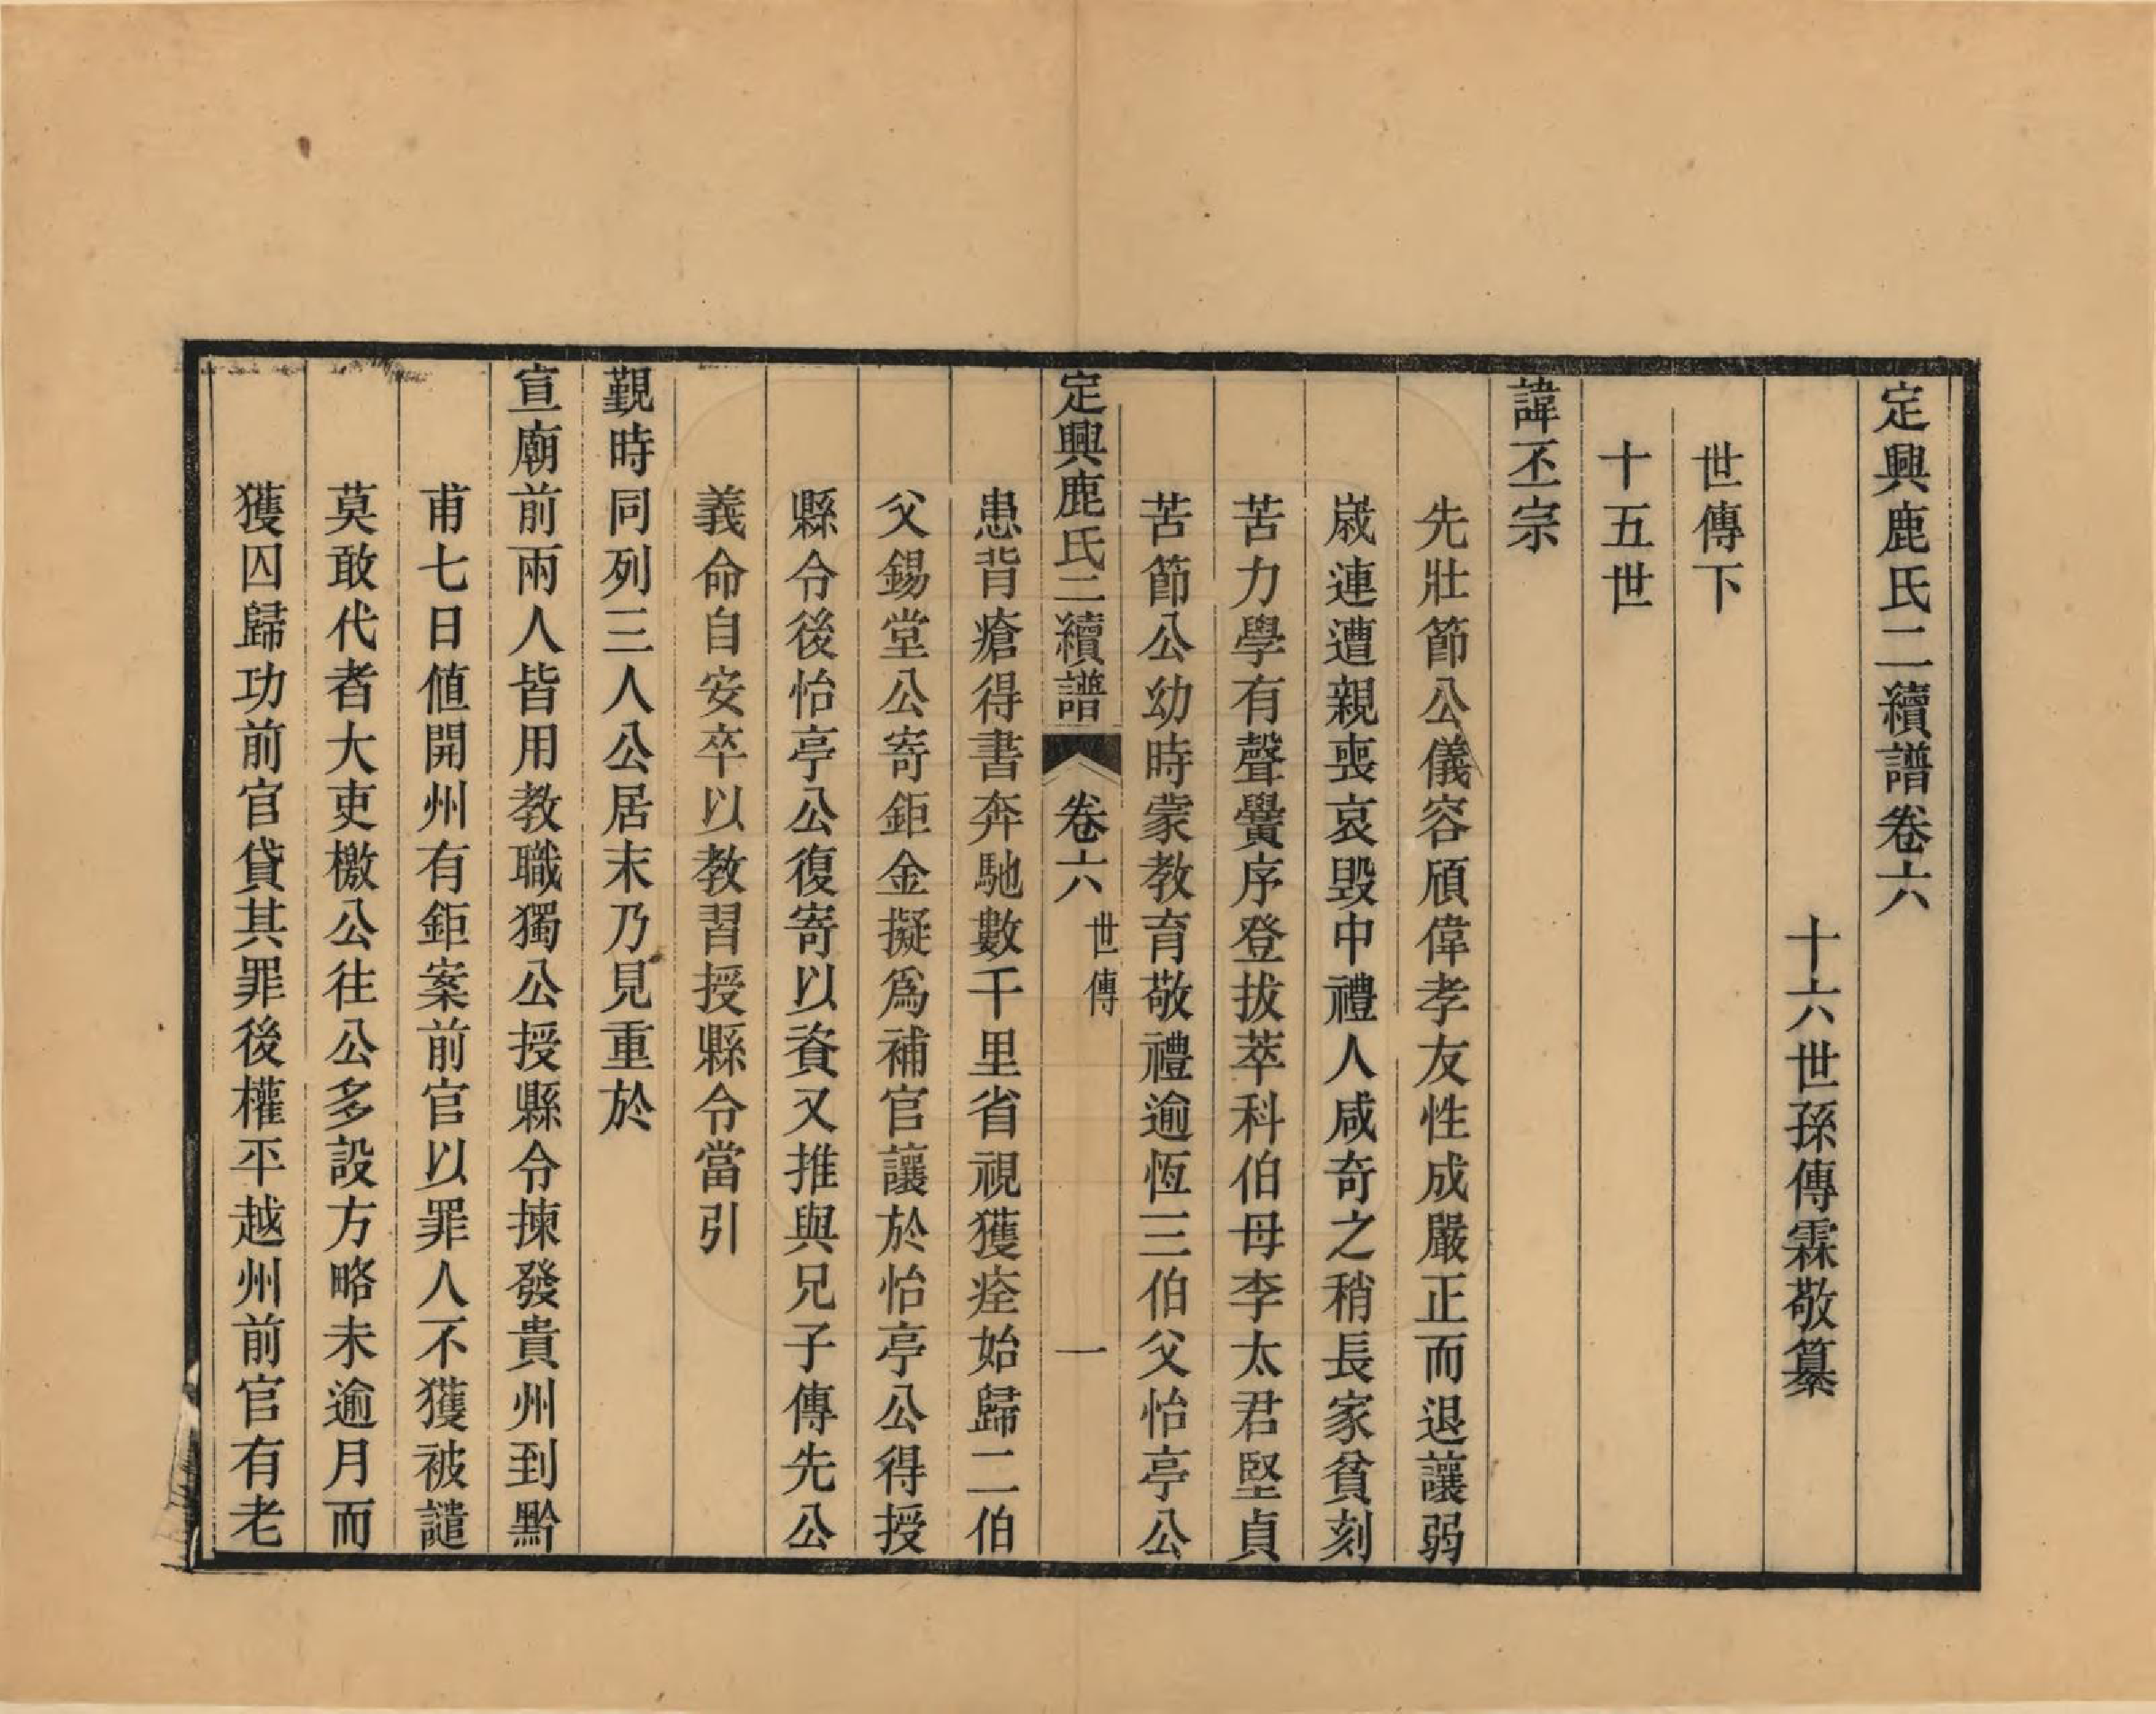 定興鹿氏二續譜卷六
十六世孫傳霖敬纂
世傳下
十五世
諱丕宗
先壯節公儀容頎偉孝友性成嚴正而退讓弱
歲連遭親喪哀毀中禮人咸奇之稍長家貧刻
苦力學有聲黌序登拔萃科伯母李太君堅貞
苦節公幼時蒙教育敬禮逾恆三伯父怡亭公
定興鹿氏二續譜 卷六 世傳 一
患背瘡得書奔馳數千里省視獲痊始歸二伯
父錫堂公寄鉅金擬爲補官讓於怡亭公得授
縣令後怡亭公復寄以資又推與兄子傳先公
義命自安卒以教習授縣令當引
覲時同列三人公居末乃見重於
宣廟前兩人皆用教職獨公授縣令揀發貴州到黔
甫七日値開州有鉅案前官以罪人不獲被譴
莫敢代者大吏檄公往公多設方略未逾月而
獲囚歸功前官貸其罪後權平越州前官有老